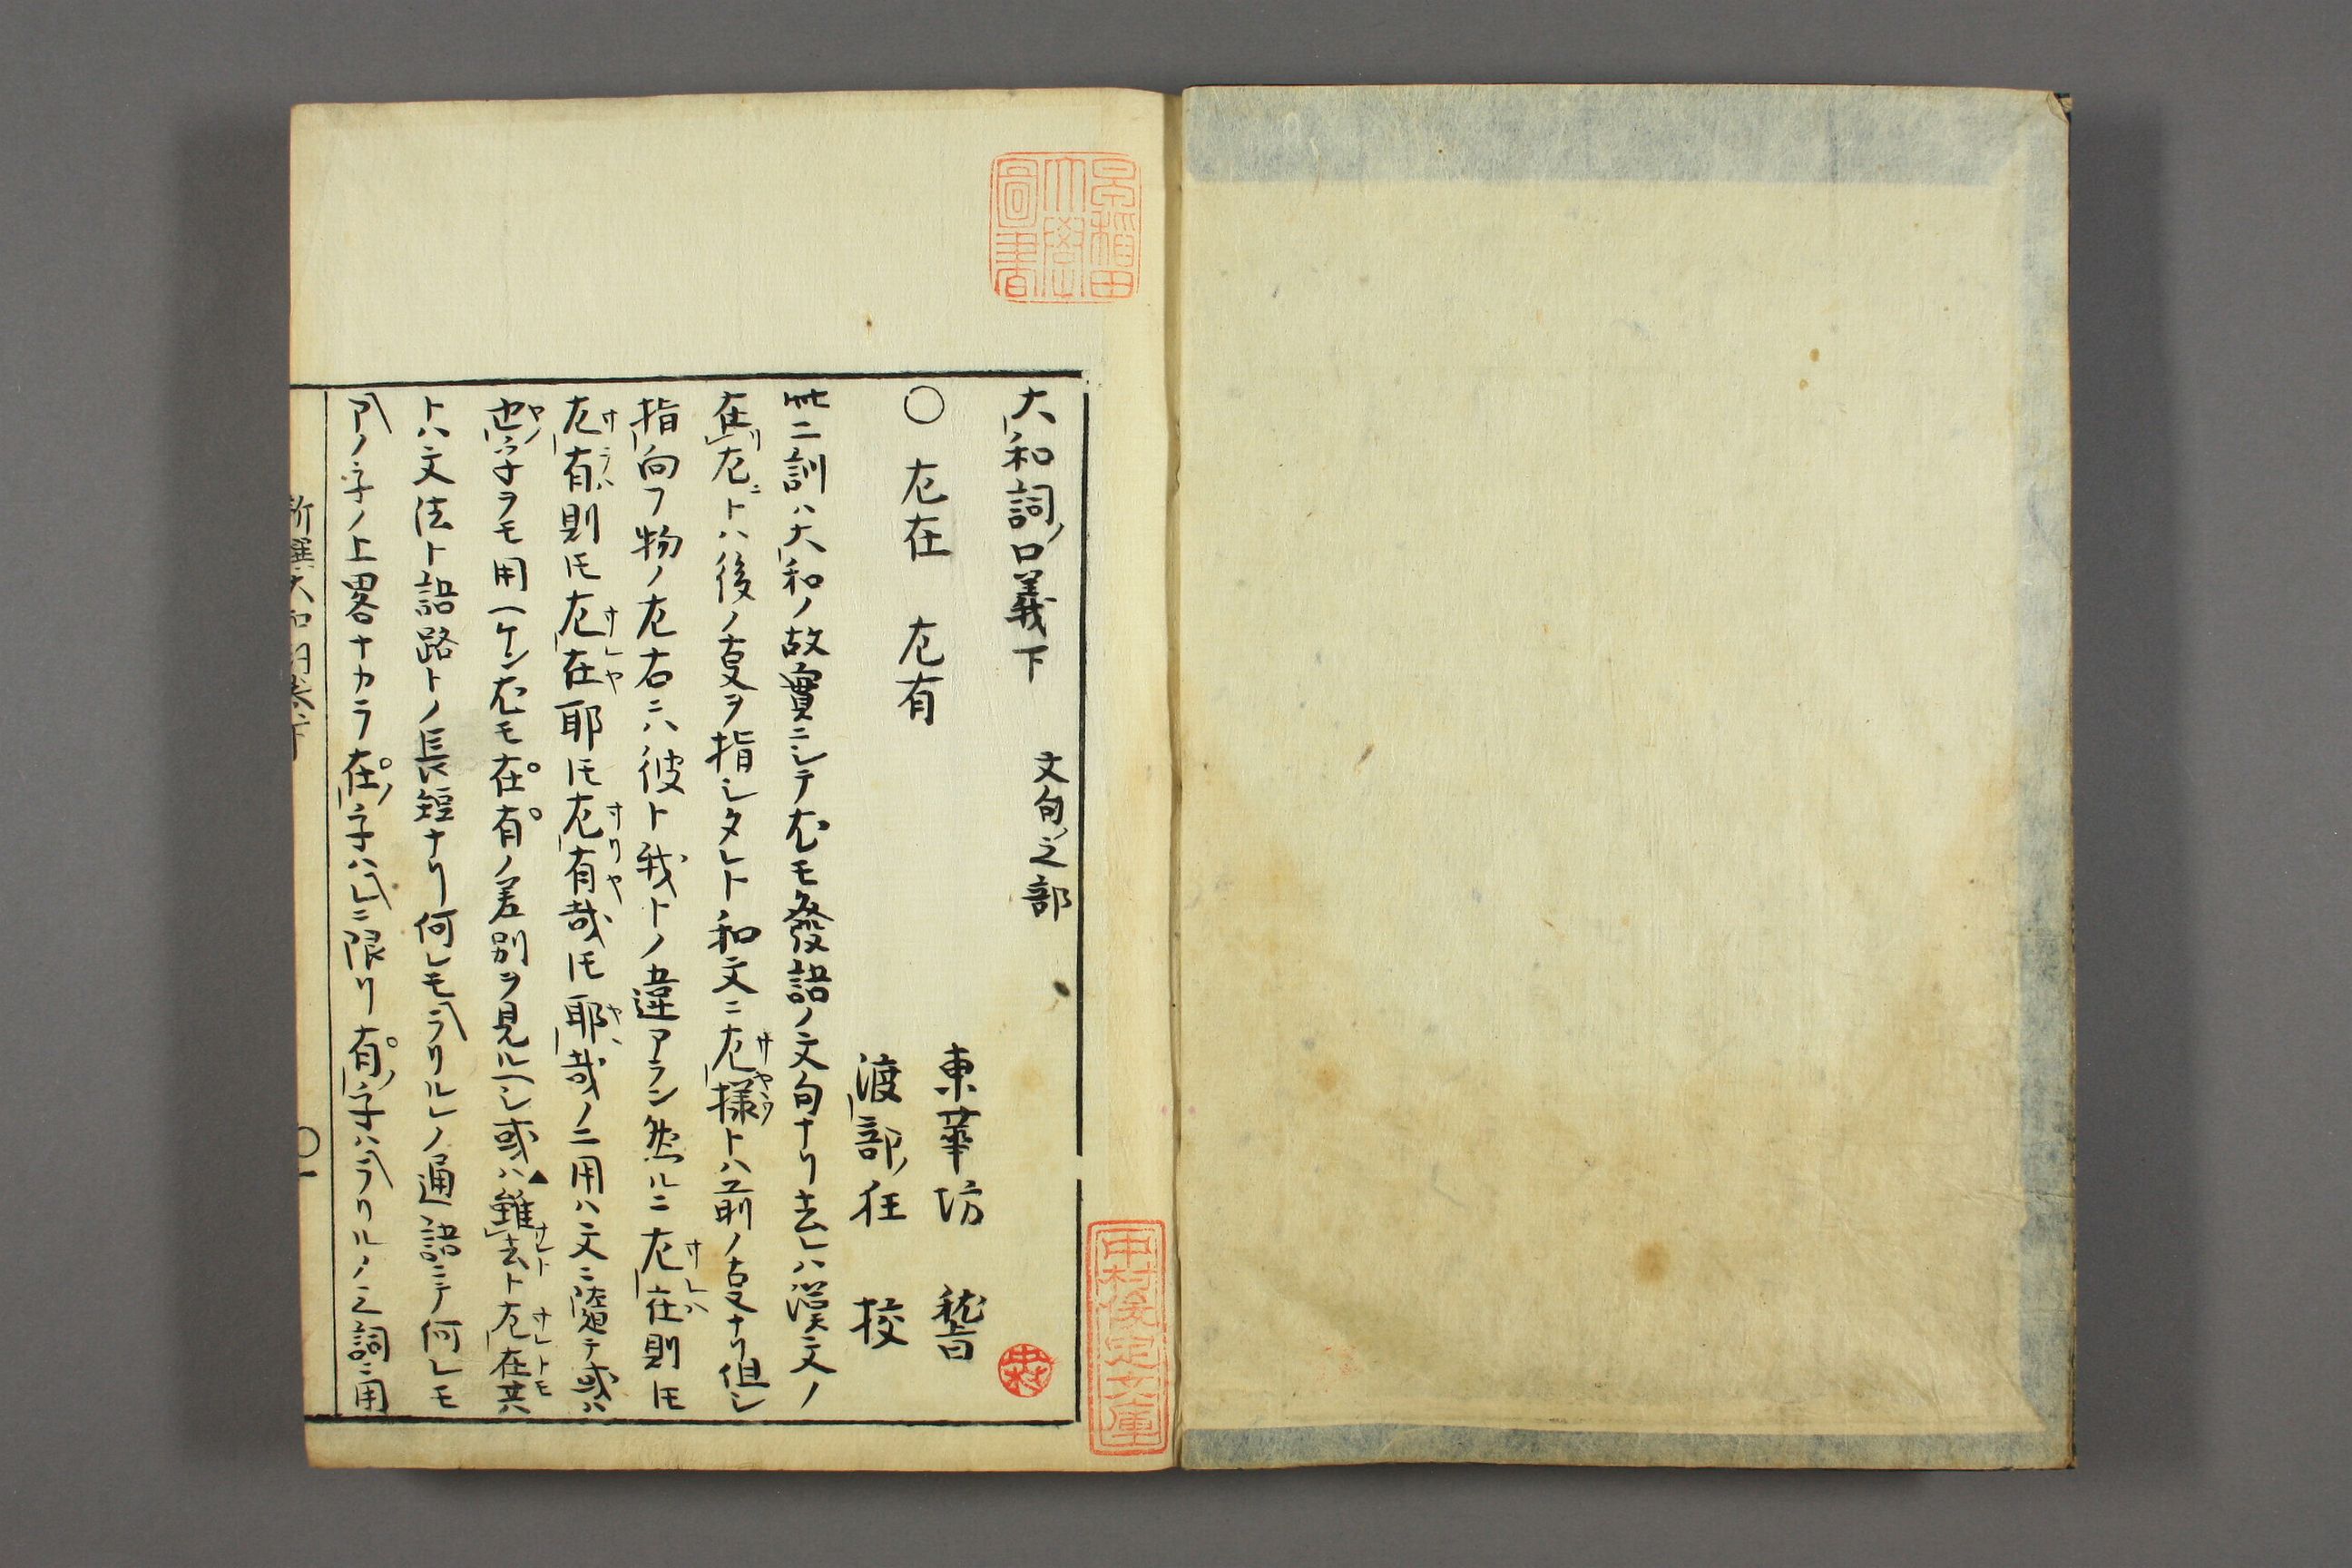 大和詞ノ口義下　文句之部
東華坊　稽
○　左在　左有
渡部ノ狂　校
此二訓ハ大和ノ故實ニシテ左モ發語ノ文句ナリ去レハ漢文ノ
在リ左ニトハ後ノ支ヲ指シタレト和文ニ左様トハ前ノ支ナリ但シ
指向フ物ノ左右ニハ彼ト我トノ違アラン然ルニ左在則ヒ
左有則ヒ左在耶ヒ左有哉ヒ耶哉ノ二用ハ文ニ隨テ或ハ
也ノ字ヲモ用ヘケン左モ在有ノ差別ヲ見ルヘシ或ハ▲雖去ト左在共
トハ文法ト語路トノ長短ナリ何レモラリルレノ通語ニテ何レモ
アノ字ノ上畧ナカラ在ノ字ハレニ限リ有ノ字ハラリルノ之詞ニ用
新撰大和詞卷下
○一
早稲田大學圖書
中村俊定文庫
中村